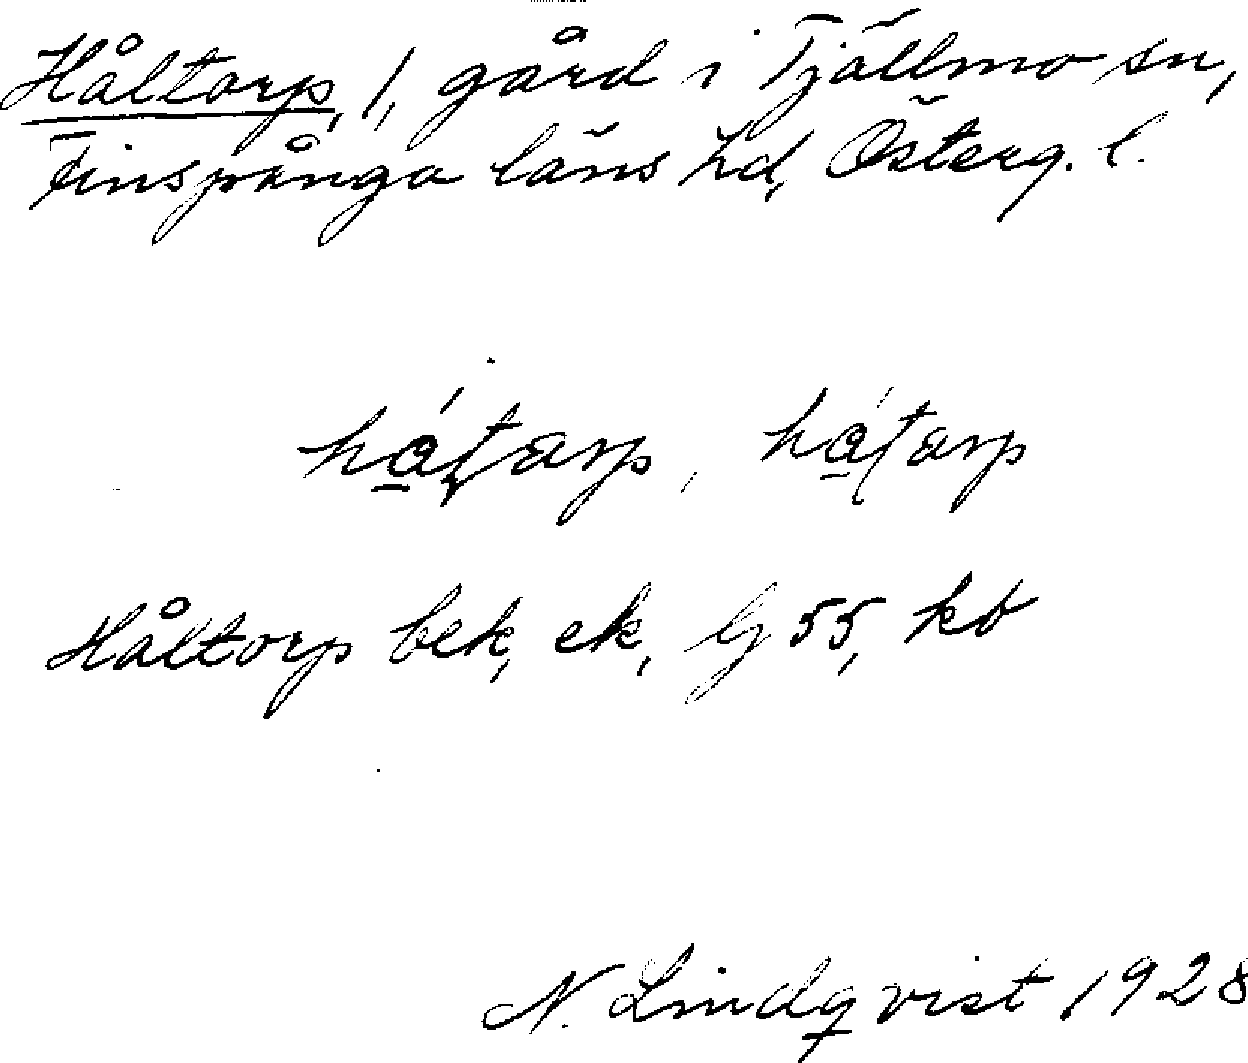 Håltorp, 1, gård i Tjällmo sn,
Finspånga läns hd, Österg. l.
håtarp, håtarp
Håltorp bek, ek, G 55, kb
N. Lindqvist 1928